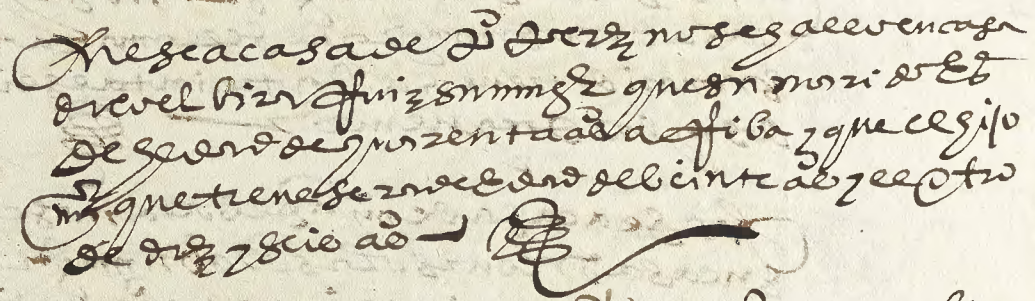 En esta casa de Jũ perez no se hallo en casa
dixo elbira Ruiz su muger quesu marido es
de hedad de quarenta aos arriba y que el hijo
mor que tiene sera de hedad de beinte aos y el otro
de diez y seis aos